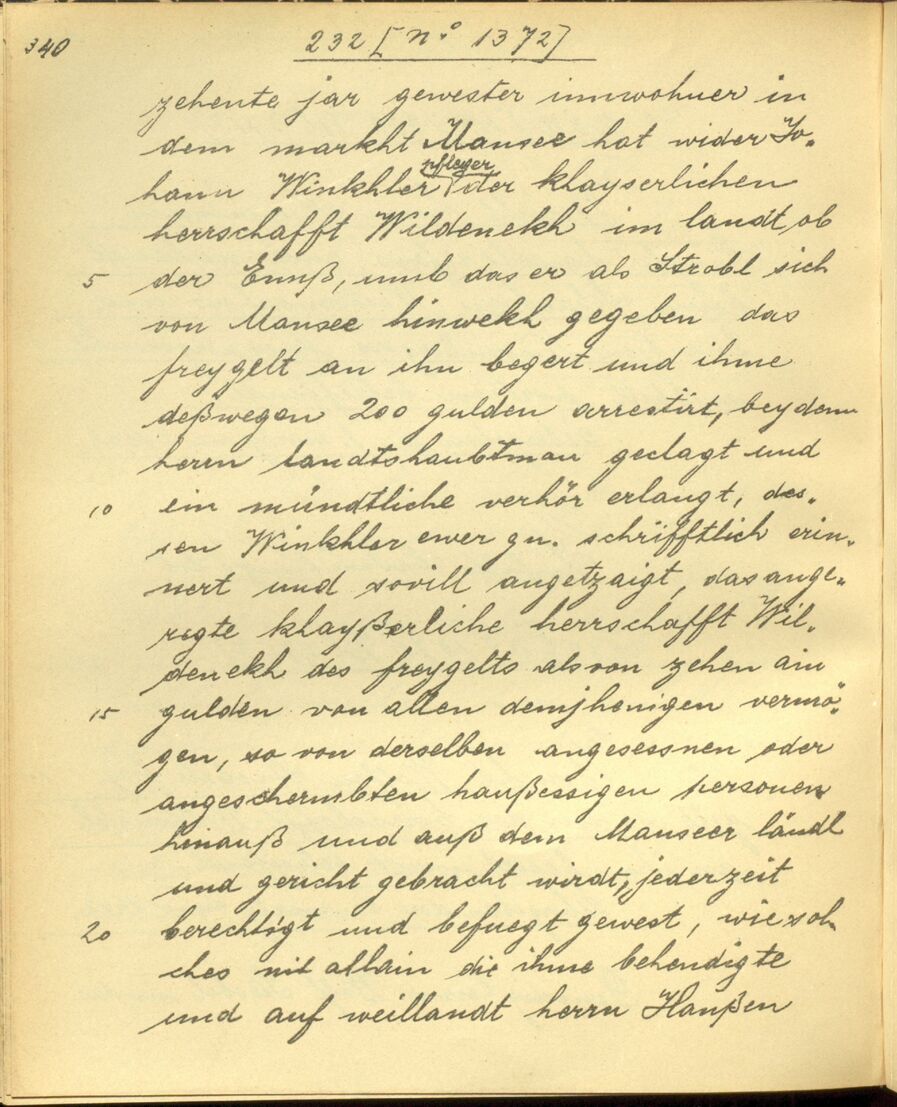 340
232 [N.º 1372]
zehente jar gewester innwohner in
dem markht Mansee hat wider Jo„
hann Winkhler pfleger der khayserlichen
herrschafft Wildenekh im landt ob
5 der Ennß, umb das er als Strobl sich
von Mansee hinwekh gegeben das
freygelt an ihn begert und ihme
deßwegen 200 gulden arrestirt, bey dem
herrn landtshaubtman geclagt und
10 ein mündtliche verhör erlangt, des„
sen Winkhler ewer gn. schrifftlich erin„
nert und sovill angetzaigt, das ange„
regte khayßerliche herrschafft Wil„
denekh des freygelts als von zehen ain
15 gulden von allen demjhenigen vermö„
gen, so von derselben angesessnen oder
angeschermbten haußessigen personen
hinauß und auß dem Manseer ländl
und gericht gebracht wirdt, jederzeit
20 berechtigt und befuegt gewest, wie sol„
ches nit allain die ihme behendigte
und auf weillandt herrn Hanßen